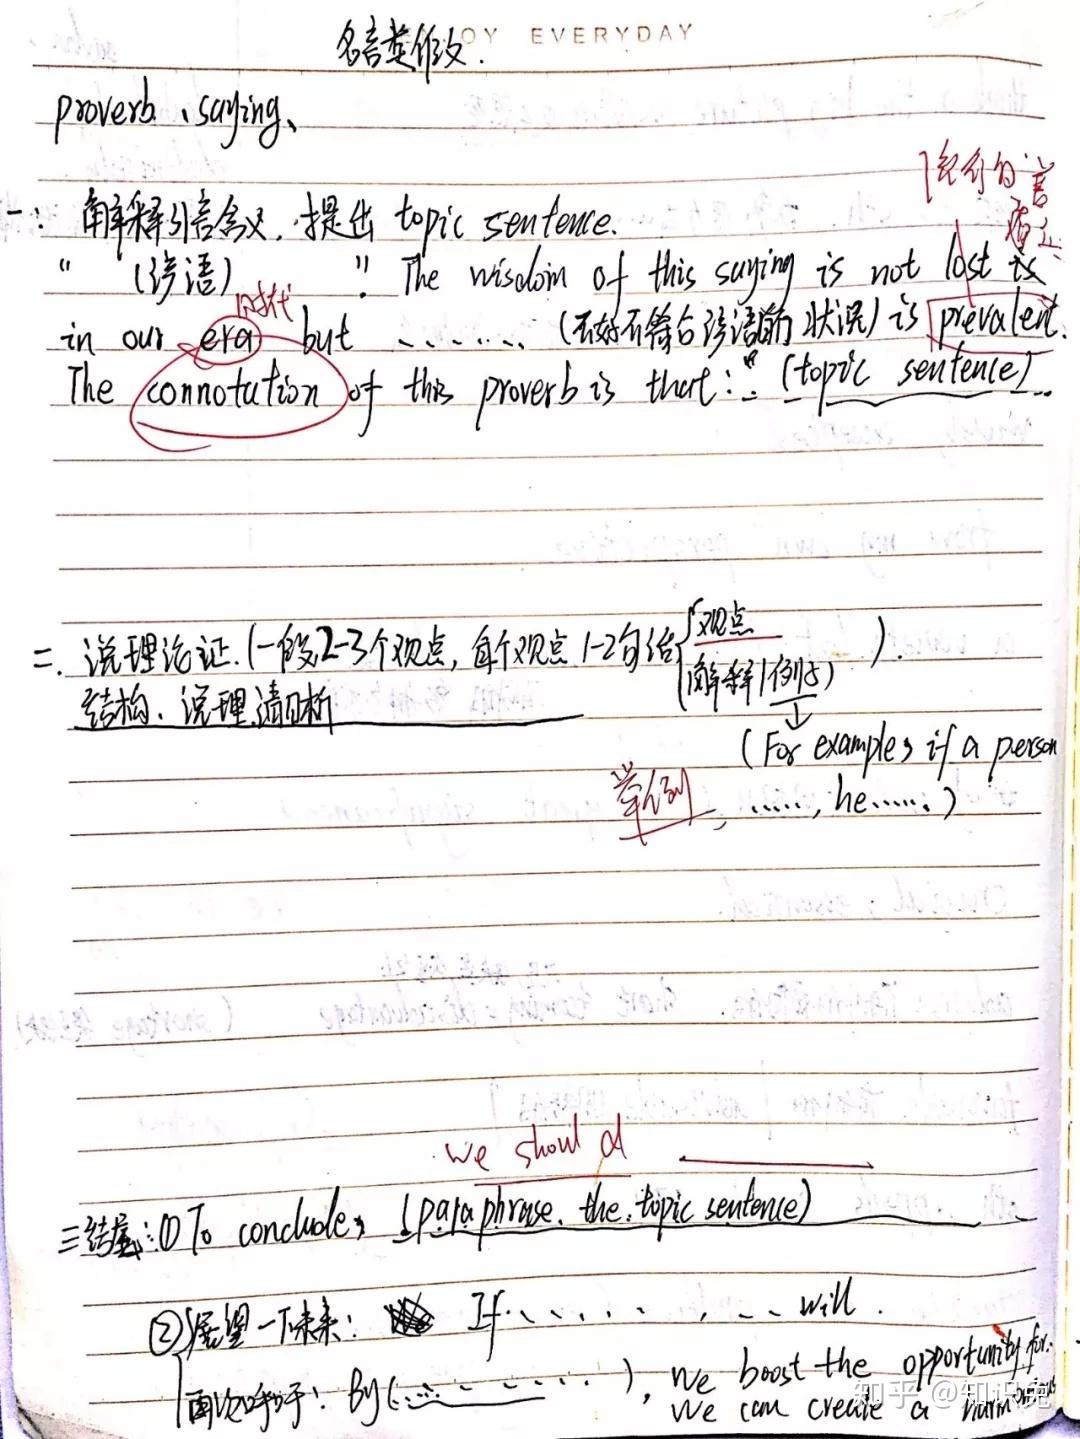 OY EVERYDAY
名言类作文.
proverb、saying、
流行的
一: 解释引言含义, 提出 topic sentence.
" (谚语) " The wisdom of this saying is not lost is
时代
in our era but ....... (不好不符合谚语的状况) is prevalent.
The connotution of this proverb is that: " (topic sentence)
二. 说理论证. (一般2-3个观点, 每个观点1-2句话 {观点
解释/例子) ).
结构、说理清晰
(For example, if a person
举例, ....., he......)
we should
三结尾: ① To conclude, (paraphrase the topic sentence)
② 展望一下未来: If ......, .. will.
再次呼吁: By (.........), we boost the opportunity for..
we can create a
知乎 @知识兔